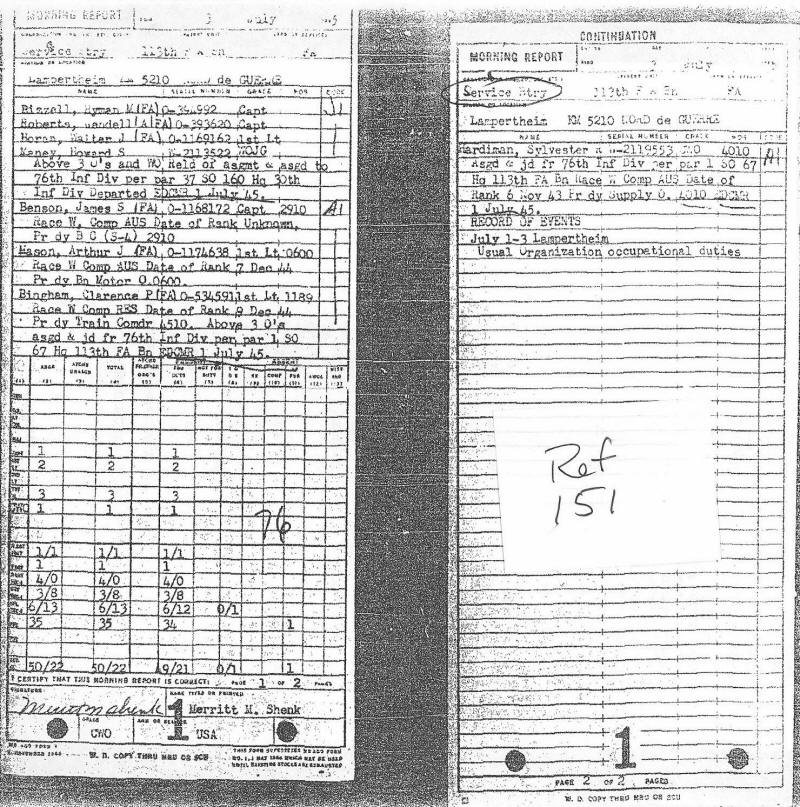 MORNING REPORT
3 July
Service Btry 113th F A Bn FA
Lampertheim KM 5210 NORD de GUERRE
NAME SERIAL NUMBER GRADE MOS CODE
Bizzell, Hyman M (FA) O-344992 Capt
Roberts, Wendell A (FA) O-393620 Capt
Horan, Walter J (FA) O-1169162 1st Lt
Maney, Howard S W-2113522 WOJG
Above 3 O's and WO Reld of asgmt & asgd to
76th Inf Div per par 37 SO 160 Hq 30th
Inf Div Departed EDCMR 1 July 45.
Benson, James S (FA) O-1168172 Capt 2910 A1
Race W, Comp AUS Date of Rank Unknown,
Pr dy B C (S-4) 2910
Mason, Arthur J (FA) O-1174638 1st Lt 0600
Race W Comp AUS Date of Rank 7 Dec 44
Pr dy Bn Motor O.0600.
Bingham, Clarence P (FA) O-534591 1st Lt 1189
Race W Comp RES Date of Rank 9 Dec 44
Pr dy Train Comdr 4510. Above 3 O's
asgd & jd fr 76th Inf Div per par 1 SO
67 Hq 113th FA Bn EDCMR 1 July 45.
TOTAL
1 1 1
2 2 2
3 3 3
CWO 1 1 1
76
1/1 1/1 1/1
1 1 1
4/0 4/0 4/0
3/8 3/8 3/8
6/13 6/13 6/12 0/1
35 35 34 1
50/22 50/22 49/21 0/1 1
I CERTIFY THAT THIS MORNING REPORT IS CORRECT: PAGE 1 OF 2 PAGES
SIGNATURE NAME TYPED OR PRINTED
Merritt M Shenk Merritt M. Shenk
GRADE
CWO 1 USA
W. D. COPY THRU MRU OR SCU
THIS FORM SUPERSEDES WD AGO FORM
NO. 1, 1 MAY 1944 WHICH MAY BE USED
UNTIL EXISTING STOCKS ARE EXHAUSTED
CONTINUATION
MORNING REPORT
3 July
Service Btry 113th F A Bn FA
Lampertheim KM 5210 NORD de GUERRE
NAME SERIAL NUMBER GRADE MOS CODE
Hardiman, Sylvester R W-2119553 CWO 4010 A1
Asgd & jd fr 76th Inf Div per par 1 SO 67
Hq 113th FA Bn Race W Comp AUS Date of
Rank 6 Nov 43 Pr dy Supply O. 4010 EDCMR
1 July 45.
RECORD OF EVENTS
July 1-3 Lampertheim
Usual Organization occupational duties
Ref
151
1
PAGE 2 OF 2 PAGES
W. D. COPY THRU MRU OR SCU